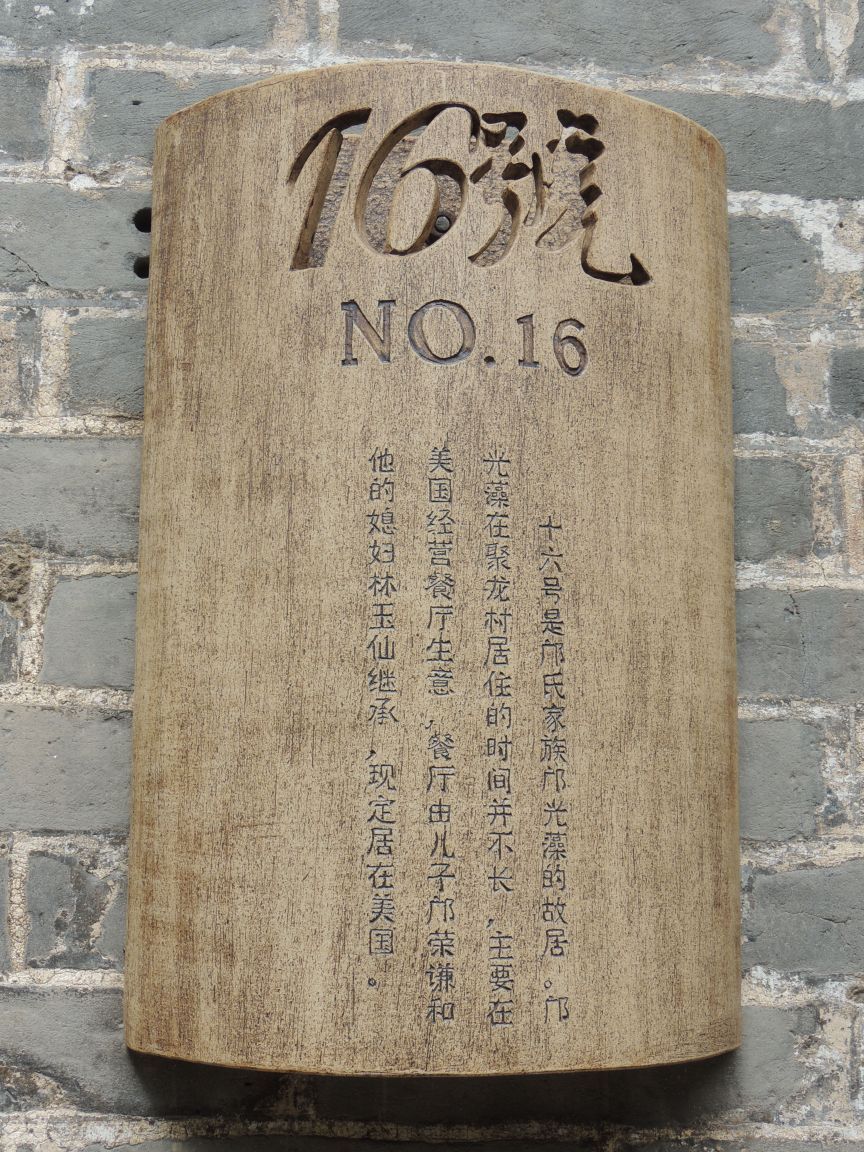 16號
NO.16
十六号是邝氏家族邝光藻的故居。邝
光藻在聚龙村居住的时间并不长,主要在
美国经营餐厅生意,餐厅由儿子邝荣谦和
他的媳妇林玉仙继承,现定居在美国。